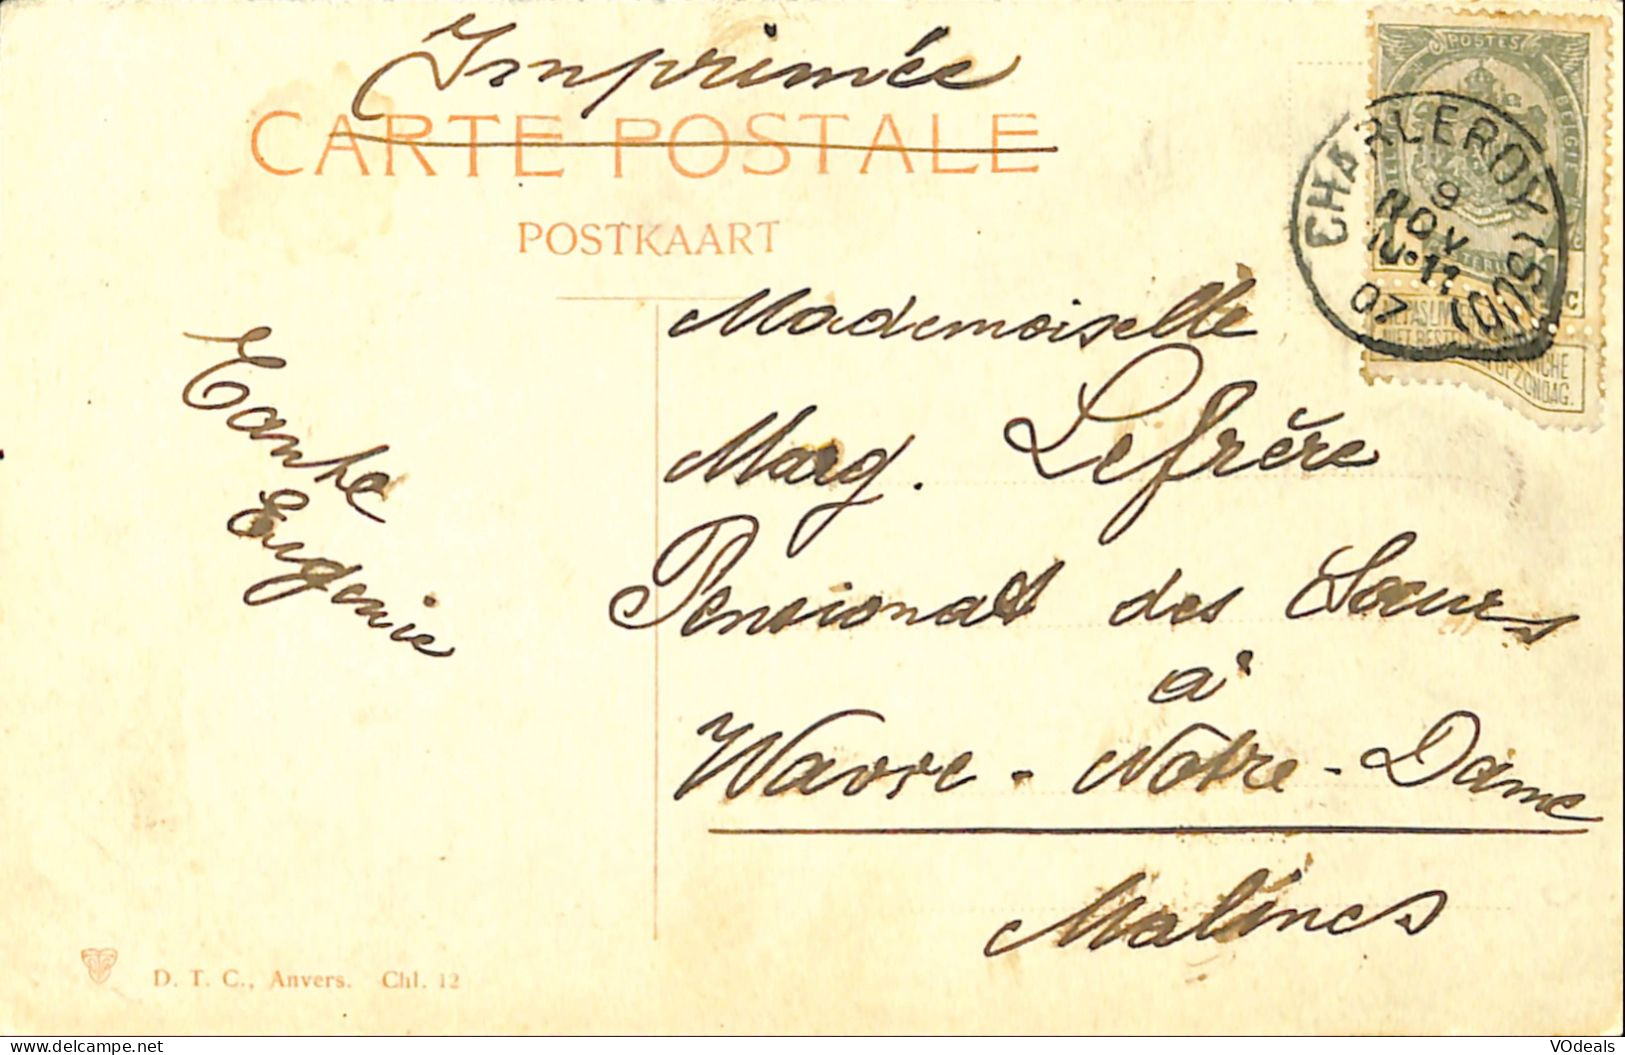 Imprimée
CARTE POSTALE
POSTKAART
POSTES
BELGIQUE
CHARLEROY (SUD)
9
NOV
10-11
07
NIET BESTELLEN OP ZONDAG.
Mademoiselle
Marg. Lefrère
Pensionat des Soeurs
à
Wavre - Notre - Dame
Malines
Tante
Eugenie
D. T. C., Anvers. Chl. 12
www.delcampe.net
VOdeals